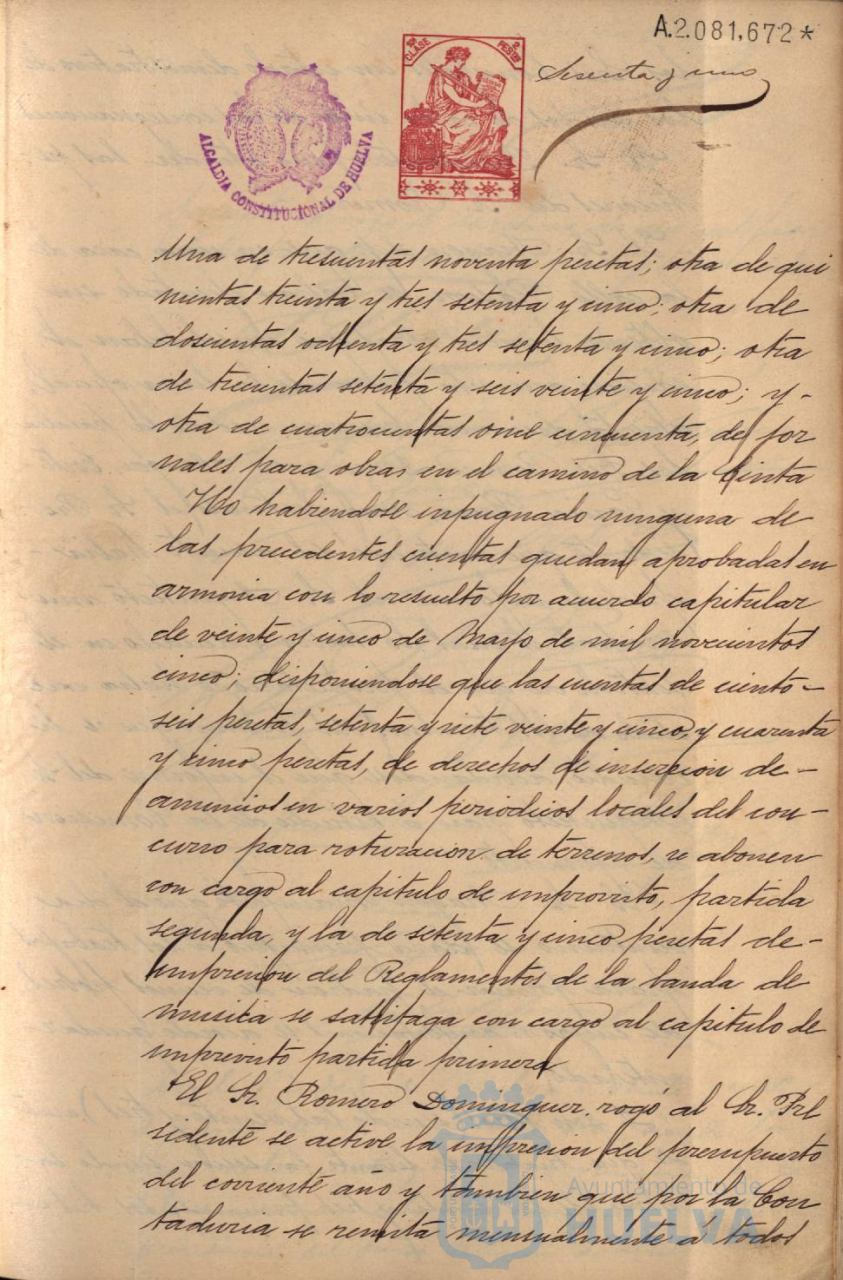 A.2.081,672*
10ª CLASE 2 PESETAS
Sesenta y uno
ALCALDIA CONSTITUCIONAL DE HUELVA
Una de trescientas noventa pesetas; otra de qui
nientas treinta y tres setenta y cinco; otra de
doscientas ochenta y tres setenta y cinco; otra
de trecientas setenta y seis veinte y cinco; y -
otra de cuatrocuentas once cincuenta, de jor
nales para obras en el camino de la Cinta
No habiendose inpugnado ninguna de
las precedentes cuentas quedan aprobadas en
armonia con lo resuelto por acuerdo capitular
de veinte y cinco de Mayo de mil novecientos
cinco; disponiendose que las cuentas de ciento -
seis pesetas, setenta y siete veinte y cinco, y cuarenta
y cinco pesetas, de derechos de insercion de -
anuncios en varios periodicos locales del con -
curso para roturacion de terrenos, se abonen
con cargo al capitulo de improvisto, partida
segunda, y la de setenta y cinco pesetas de -
impresion del Reglamentos de la banda de
musica se satisfaga con cargo al capitulo de
imprevisto partida primera
El Sr. Romero Dominguez rogó al Sr. Pre
sidente se active la impresion del presupuesto
del corriente año y tambien que por la Con
taduria se remita mensualmente á todos
Ayuntamiento de
HUELVA